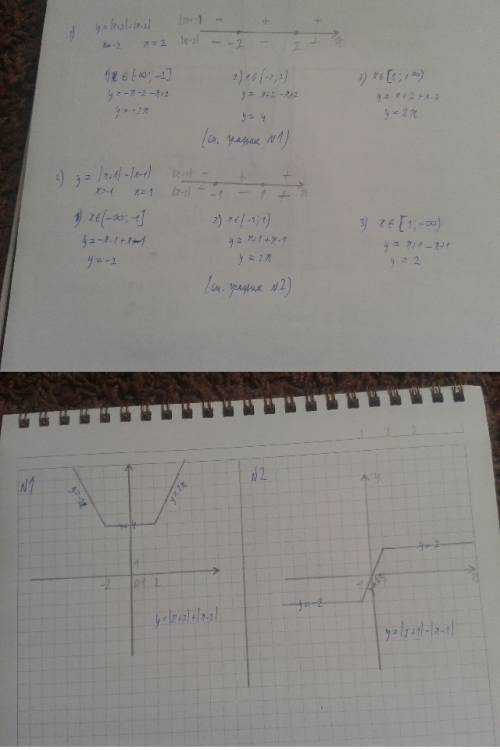 1) y = |x+2|+|x-2|
x=-2 x=2
|x+2| - + +
|x-2| - -2 - 2 + x
1) x∈(-∞;-2] 2) x∈(-2;2) 3) x∈[2;+∞)
y=-x-2-x+2 y=x+2-x+2 y=x+2+x-2
y=-2x y=4 y=2x
(см. график №1)
2) y = |x+1|-|x-1|
x=-1 x=1
|x+1| - + +
|x-1| - -1 - 1 + x
1) x∈(-∞;-1] 2) x∈(-1;1) 3) x∈[1;-∞)
y=-x-1+x-1 y=x+1+x-1 y=x+1-x+1
y=-2 y=2x y=2
(см. график №2)
№1 №2
y=-2x y=2x
y
4
1
-2 0 1 2
y=|x+2|+|x-2|
y=2
y=2x
y=-2
y=|x+1|-|x-1|